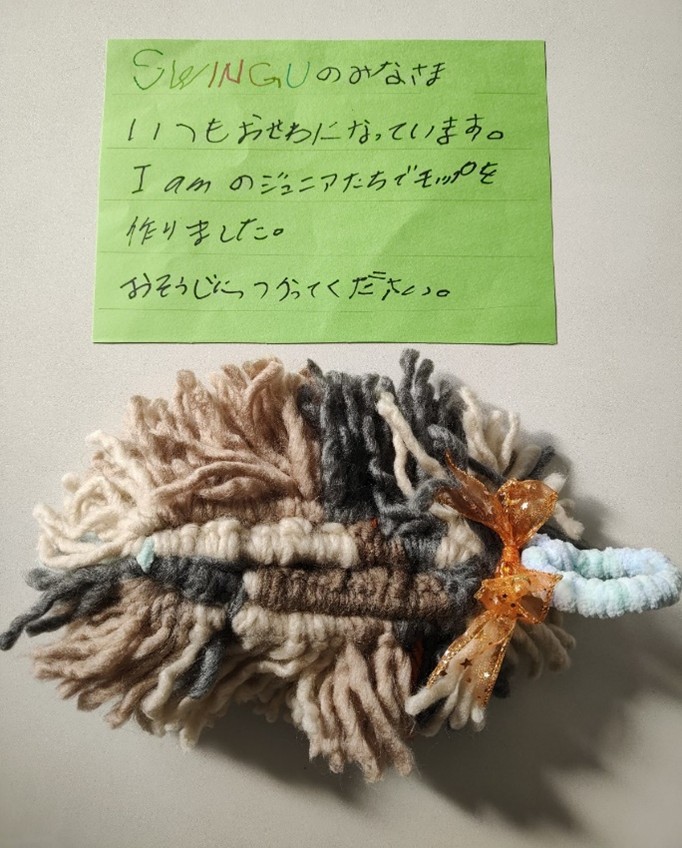 SWINGUのみなさま
いつもおせわになっています。
I amのジュニアたちでモップを
作りました。
おそうじにつかってください。